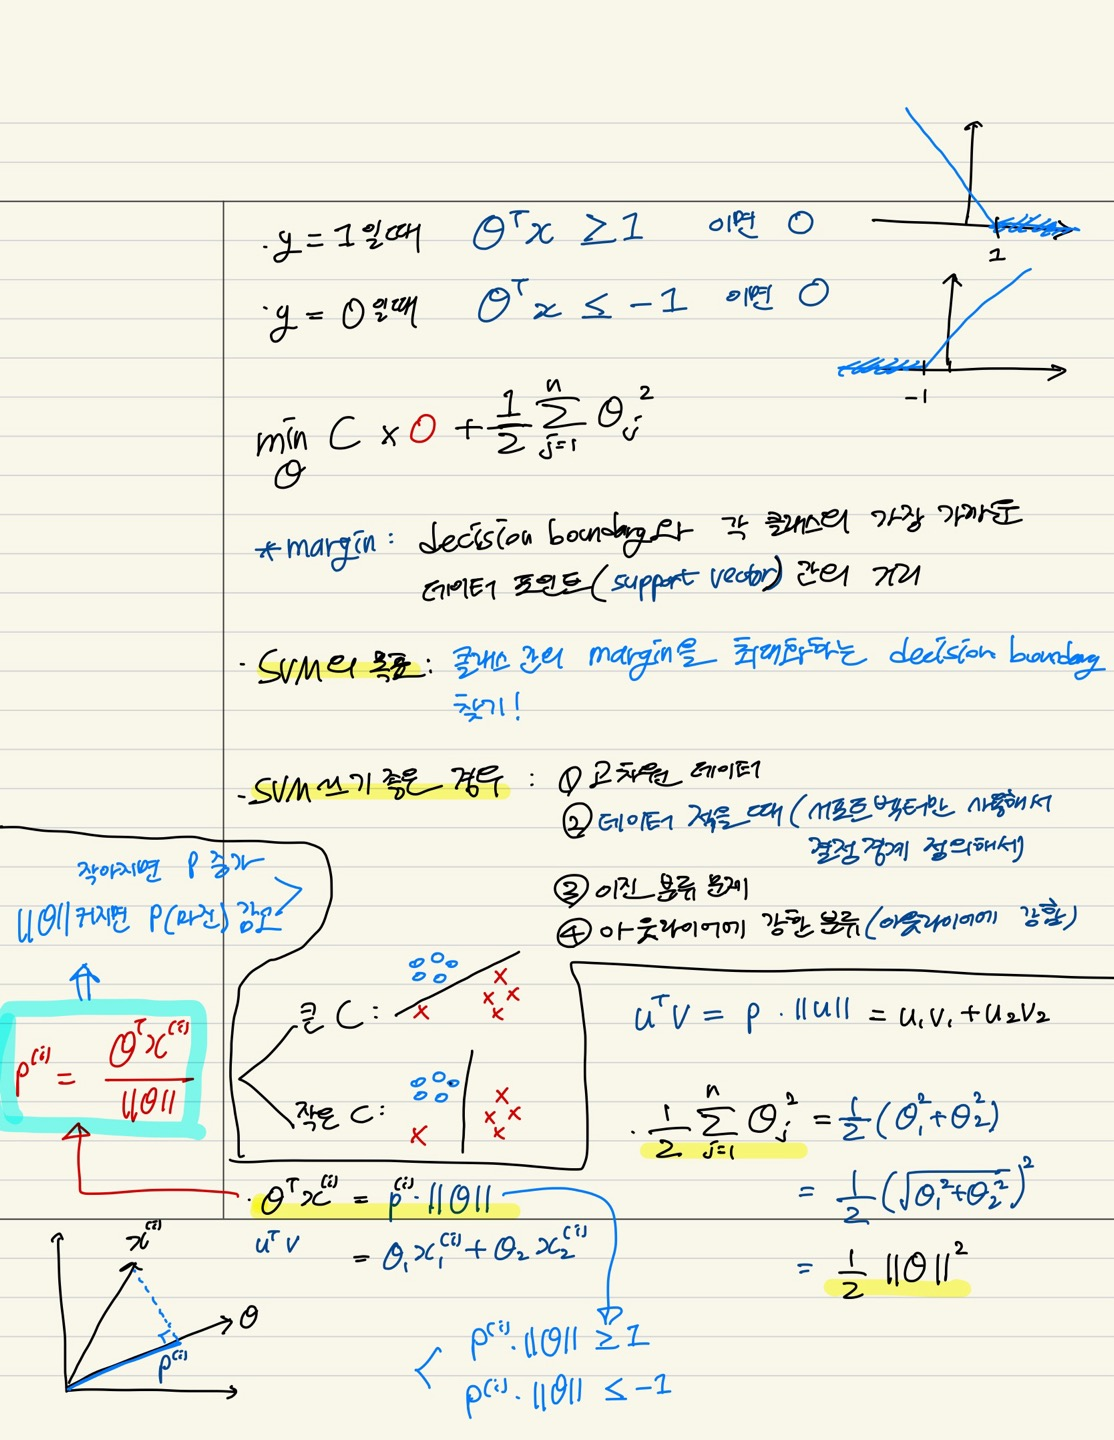 · y = 1 일때 θᵀx ≥ 1 이면 0
1
· y = 0 일때 θᵀx ≤ -1 이면 0
-1
min_θ C × 0 + 1/2 Σ_{j=1}^{n} θ_j²
* margin : decision boundary와 각 클래스의 가장 가까운
데이터 포인트(support vector) 간의 거리
· SVM의 목표 : 클래스 간의 margin을 최대화하는 decision boundary
찾기!
· SVM 쓰기 좋은 경우 : ① 고차원 데이터
② 데이터 적을 때 (서포트 벡터만 사용해서
결정 경계 정의해서)
③ 이진 분류 문제
④ 아웃라이어에 강한 분류 (아웃라이어에 강함)
작아지면 P 증가
||θ|| 커지면 P(마진) 감소
p⁽ⁱ⁾ = θᵀx⁽ⁱ⁾ / ||θ||
큰 C :
작은 C :
uᵀv = p · ||u|| = u₁v₁ + u₂v₂
· 1/2 Σ_{j=1}^{n} θ_j² = 1/2 (θ₁² + θ₂²)
= 1/2 (√θ₁² + θ₂²)²
= 1/2 ||θ||²
· θᵀx⁽ⁱ⁾ = p⁽ⁱ⁾ · ||θ||
uᵀv = θ₁x₁⁽ⁱ⁾ + θ₂x₂⁽ⁱ⁾
p⁽ⁱ⁾ · ||θ|| ≥ 1
p⁽ⁱ⁾ · ||θ|| ≤ -1
x⁽ⁱ⁾
θ
p⁽ⁱ⁾